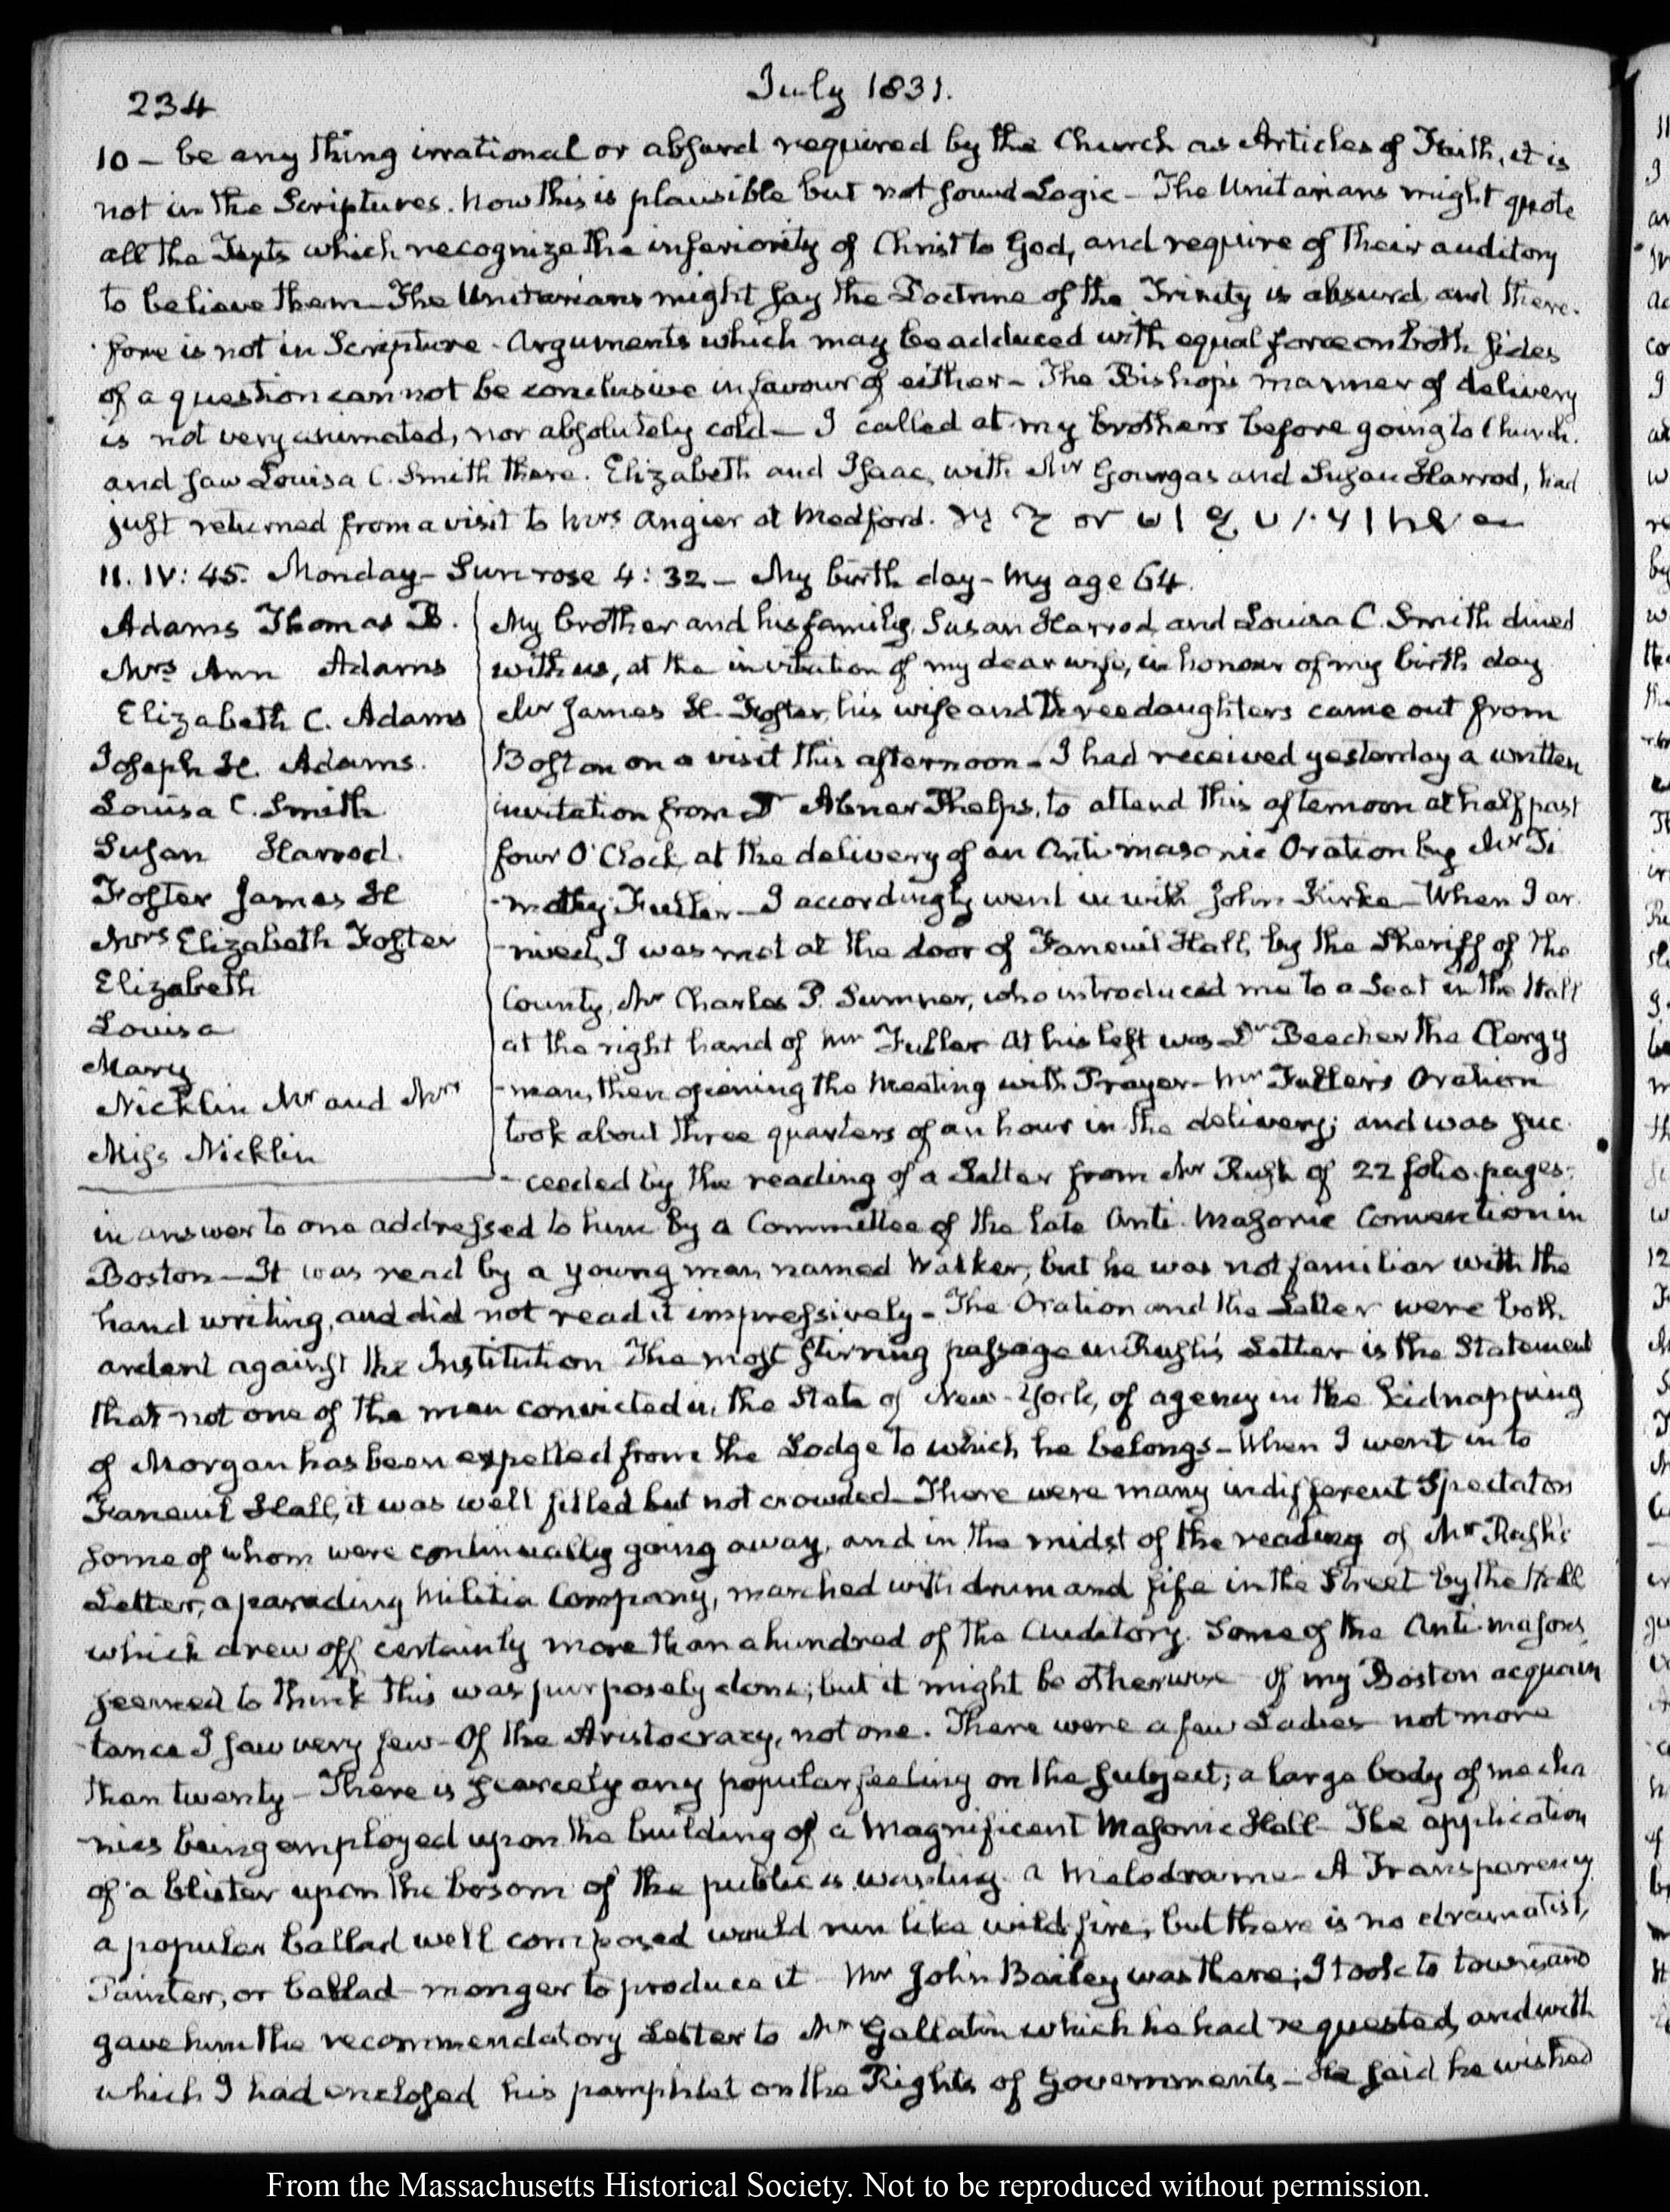 234
July 1831.
10 – be any thing irrational or absurd required by the Church as Articles of Faith, it is
not in the Scriptures. Now this is plausible but not sound Logic – The Unitarians might quote
all the Texts which recognize the inferiority of Christ to God, and require of their auditory
to believe them – The Unitarians might say the Doctrine of the Trinity is absurd, and there-
fore is not in Scripture – Arguments which may be adduced with equal force on both sides
of a question can not be conclusive in favour of either – The Bishop's manner of delivery
is not very animated, nor absolutely cold – I called at my brothers before going to Church.
and saw Louisa C. Smith there. Elizabeth and Isaac, with Mr Gourgas and Susan Harrod, had
just returned from a visit to Mrs Angier at Medford.
11. IV: 45. Monday – Sun rose 4:32 – My birth day – My age 64.
Adams Thomas B.
Mrs Ann Adams
Elizabeth C. Adams
Joseph H. Adams.
Louisa C. Smith
Susan Harrod.
Foster James H
Mrs Elizabeth Foster
Elizabeth
Louisa
Mary
Nicklin Mr and Mrs
Miss Nicklin
My brother and his family, Susan Harrod, and Louisa C. Smith dined
with us, at the invitation of my dear wife, in honour of my birth day
Mr James H. Foster, his wife and three daughters came out from
Boston on a visit this afternoon – I had received yesterday a written
invitation from D Abner Phelps, to attend this afternoon at half past
four O'Clock, at the delivery of an Anti masonic Oration by Mr Ti
-mothy Fuller – I accordingly went in with John Kirke – When I ar
-rived, I was met at the door of Faneuil Hall, by the Sheriff of the
County, Mr Charles P. Sumner, who introduced me to a Seat in the Hall
at the right hand of Mr Fuller At his left was Dr Beecher the Clergy
-man, then opening the Meeting with Prayer – Mr Fuller's Oration
took about three quarters of an hour in the delivery; and was suc
-ceeded by the reading of a Letter from Mr Rush of 22 folio pages;
in answer to one addressed to him by a Committee of the late Anti-Masonic Convention in
Boston – It was read by a young man, named Walker, but he was not familiar with the
hand writing, and did not read it impressively – The Oration and the Letter were both
ardent against the Institution The most stirring passage in Rush's Letter is the Statement
that not one of the men convicted in the State of New-York, of agency in the kidnapping
of Morgan has been expelled from the Lodge to which he belongs – When I went in to
Faneuil Hall, it was well filled but not crowded – There were many indifferent Spectators
some of whom were continually going away, and in the midst of the reading of Mr Rush's
Letter, a parading Militia Company, marched with drum and fife in the Street by the Hall
which drew off certainly more than a hundred of the Auditory. Some of the Anti-masons
seemed to think this was purposely done; but it might be otherwise – Of my Boston acquain
-tance I saw very few – Of the Aristocracy, not one. There were a few Ladies – not more
than twenty – There is scarcely any popular feeling on the subject; a large body of mecha
-nics being employed upon the building of a Magnificent Masonic Hall – The application
of a blister upon the bosom of the public is wanting. a Melodrame – A Transparency
a popular ballad well composed would run like wild fire, but there is no dramatist,
Painter, or ballad-monger to produce it – Mr John Bailey was there; I took to town, and
gave him the recommendatory Letter to Mr Gallatin which he had requested, and with
which I had enclosed his pamphlet on the Rights of Governments – He said he wished
From the Massachusetts Historical Society. Not to be reproduced without permission.